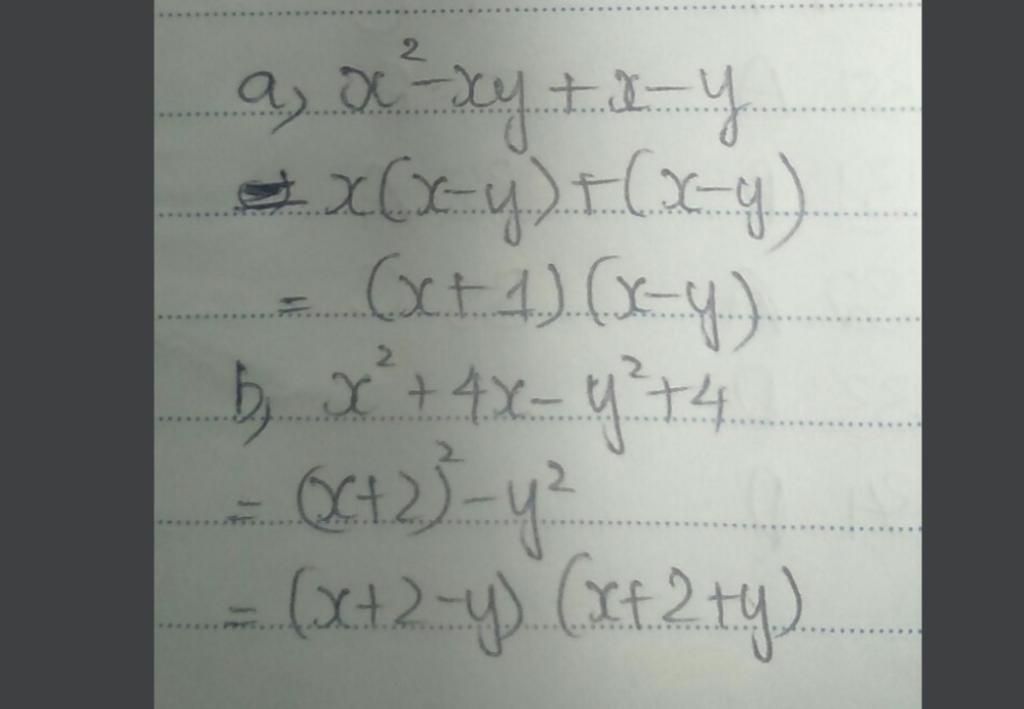 a, x² - xy + x - y
= x(x-y) + (x-y)
= (x+1)(x-y)
b, x² + 4x - y² + 4
= (x+2)² - y²
= (x+2-y) (x+2+y)